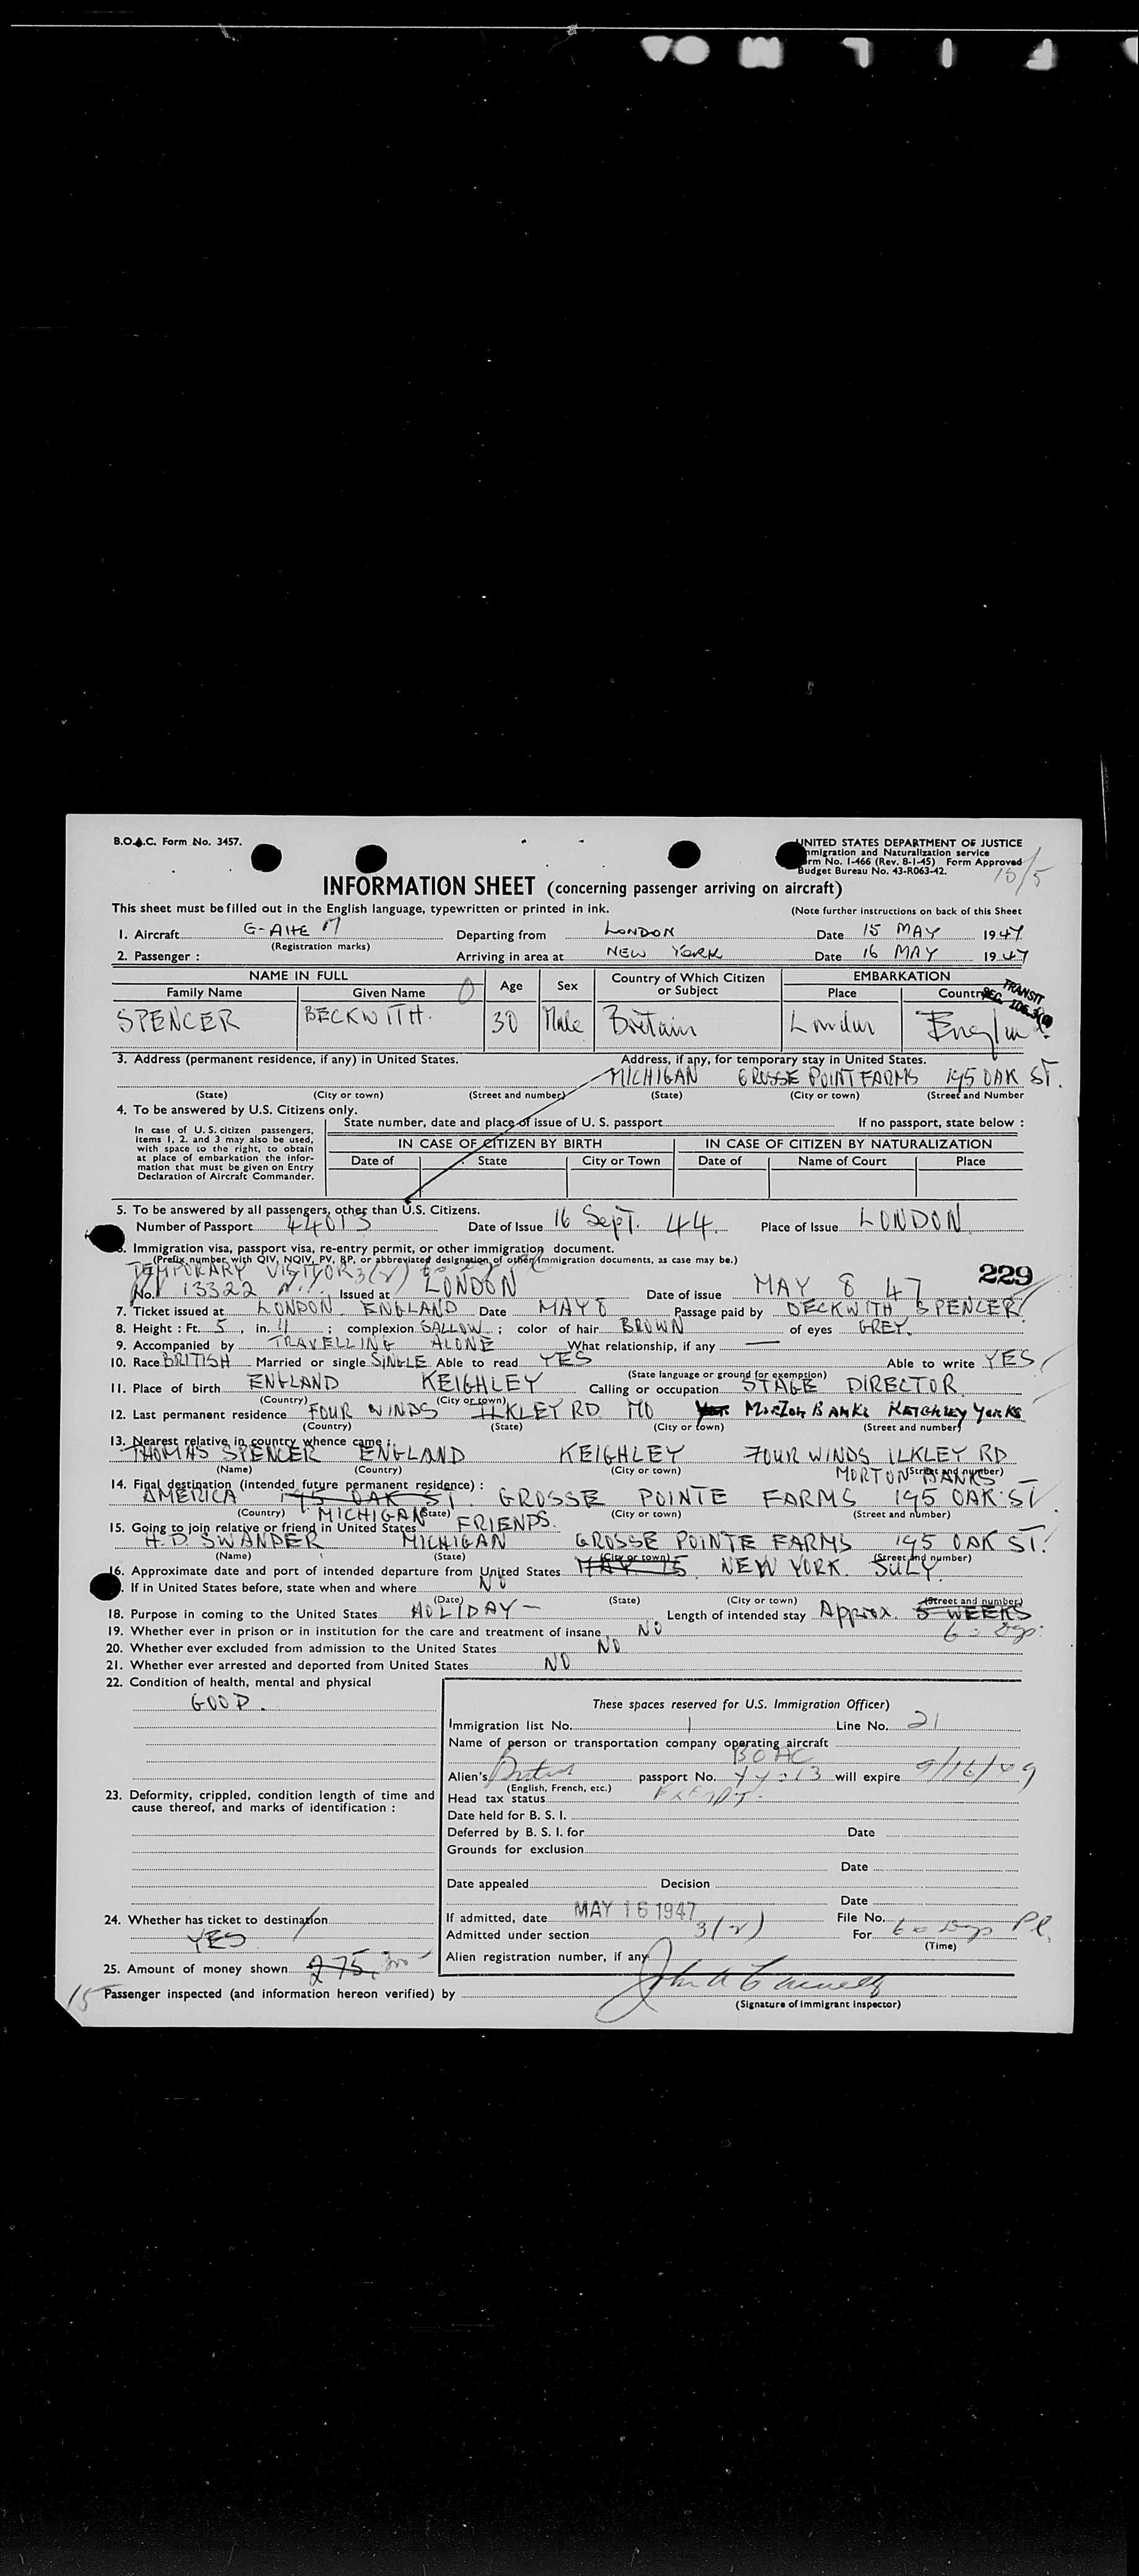 B.O.A.C. Form No. 3457.
UNITED STATES DEPARTMENT OF JUSTICE
Immigration and Naturalization service
Form No. I-466 (Rev. 8-1-45) Form Approved
Budget Bureau No. 43-R063-42.
15/5
INFORMATION SHEET (concerning passenger arriving on aircraft)
This sheet must be filled out in the English language, typewritten or printed in ink.
(Note further instructions on back of this Sheet
1. Aircraft G-AHEM Departing from LONDON Date 15 MAY 1947
(Registration marks)
2. Passenger : Arriving in area at NEW YORK Date 16 MAY 1947
NAME IN FULL Age Sex Country of Which Citizen or Subject EMBARKATION
Family Name Given Name Place Country
TRANSIT
SPENCER BECKWITH. 30 Male Britain London England.
3. Address (permanent residence, if any) in United States. Address, if any, for temporary stay in United States.
MICHIGAN GROSSE POINT FARMS 195 OAK ST.
(State) (City or town) (Street and number) (State) (City or town) (Street and Number
4. To be answered by U.S. Citizens only.
State number, date and place of issue of U. S. passport If no passport, state below :
In case of U. S. citizen passengers, items 1, 2, and 3 may also be used, with space to the right, to obtain at place of embarkation the information that must be given on Entry Declaration of Aircraft Commander.
IN CASE OF CITIZEN BY BIRTH IN CASE OF CITIZEN BY NATURALIZATION
Date of State City or Town Date of Name of Court Place
5. To be answered by all passengers, other than U.S. Citizens.
Number of Passport 44013 Date of Issue 16 Sept. 44. Place of Issue LONDON
6. Immigration visa, passport visa, re-entry permit, or other immigration document.
(Prefix number with QIV, NQIV, PV, RP, or abbreviated designation of other immigration documents, as case may be.)
TEMPORARY VISITOR 3(2)
229
No. 13322 Issued at LONDON Date of issue MAY 8 47
7. Ticket issued at LONDON ENGLAND Date MAY 8 Passage paid by BECKWITH SPENCER
8. Height : Ft. 5, in. 11 ; complexion SALLOW ; color of hair BROWN of eyes GREY.
9. Accompanied by TRAVELLING ALONE What relationship, if any —
10. Race BRITISH Married or single SINGLE Able to read YES Able to write YES
(State language or ground for exemption)
11. Place of birth ENGLAND KEIGHLEY Calling or occupation STAGE DIRECTOR
(Country) (City or town)
12. Last permanent residence FOUR WINDS ILKLEY RD MO MORTON BANKS KEIGHLEY YORKS
(Country) (State) (City or town) (Street and number)
13. Nearest relative in country whence came :
THOMAS SPENCER ENGLAND KEIGHLEY FOUR WINDS ILKLEY RD
MORTON BANKS
(Name) (Country) (City or town) (Street and number)
14. Final destination (intended future permanent residence) :
AMERICA 195 OAK ST. GROSSE POINTE FARMS 195 OAK ST
(Country) MICHIGAN (State) (City or town) (Street and number)
15. Going to join relative or friend in United States FRIENDS.
H. D. SWANDER MICHIGAN GROSSE POINTE FARMS 195 OAK ST.
(Name) (State) (City or town) (Street and number)
16. Approximate date and port of intended departure from United States MAY 15 NEW YORK. JULY.
17. If in United States before, state when and where NO
(Date) (State) (City or town) (Street and number)
18. Purpose in coming to the United States HOLIDAY — Length of intended stay Approx. 5 WEEKS
19. Whether ever in prison or in institution for the care and treatment of insane NO
20. Whether ever excluded from admission to the United States NO
21. Whether ever arrested and deported from United States NO
22. Condition of health, mental and physical
GOOD.
These spaces reserved for U.S. Immigration Officer)
Immigration list No. 1 Line No. 21
Name of person or transportation company operating aircraft
BOAC
Alien's British passport No. 44013 will expire 9/16/49
(English, French, etc.)
Head tax status EXEMPT.
23. Deformity, crippled, condition length of time and cause thereof, and marks of identification :
Date held for B. S. I.
Deferred by B. S. I. for Date
Grounds for exclusion
Date
Date appealed Decision
Date
24. Whether has ticket to destination
YES
If admitted, date MAY 16 1947 File No.
Admitted under section 3(2) For 60 Dys
(Time)
Alien registration number, if any
25. Amount of money shown 275. 300
15
Passenger inspected (and information hereon verified) by
(Signature of Immigrant Inspector)